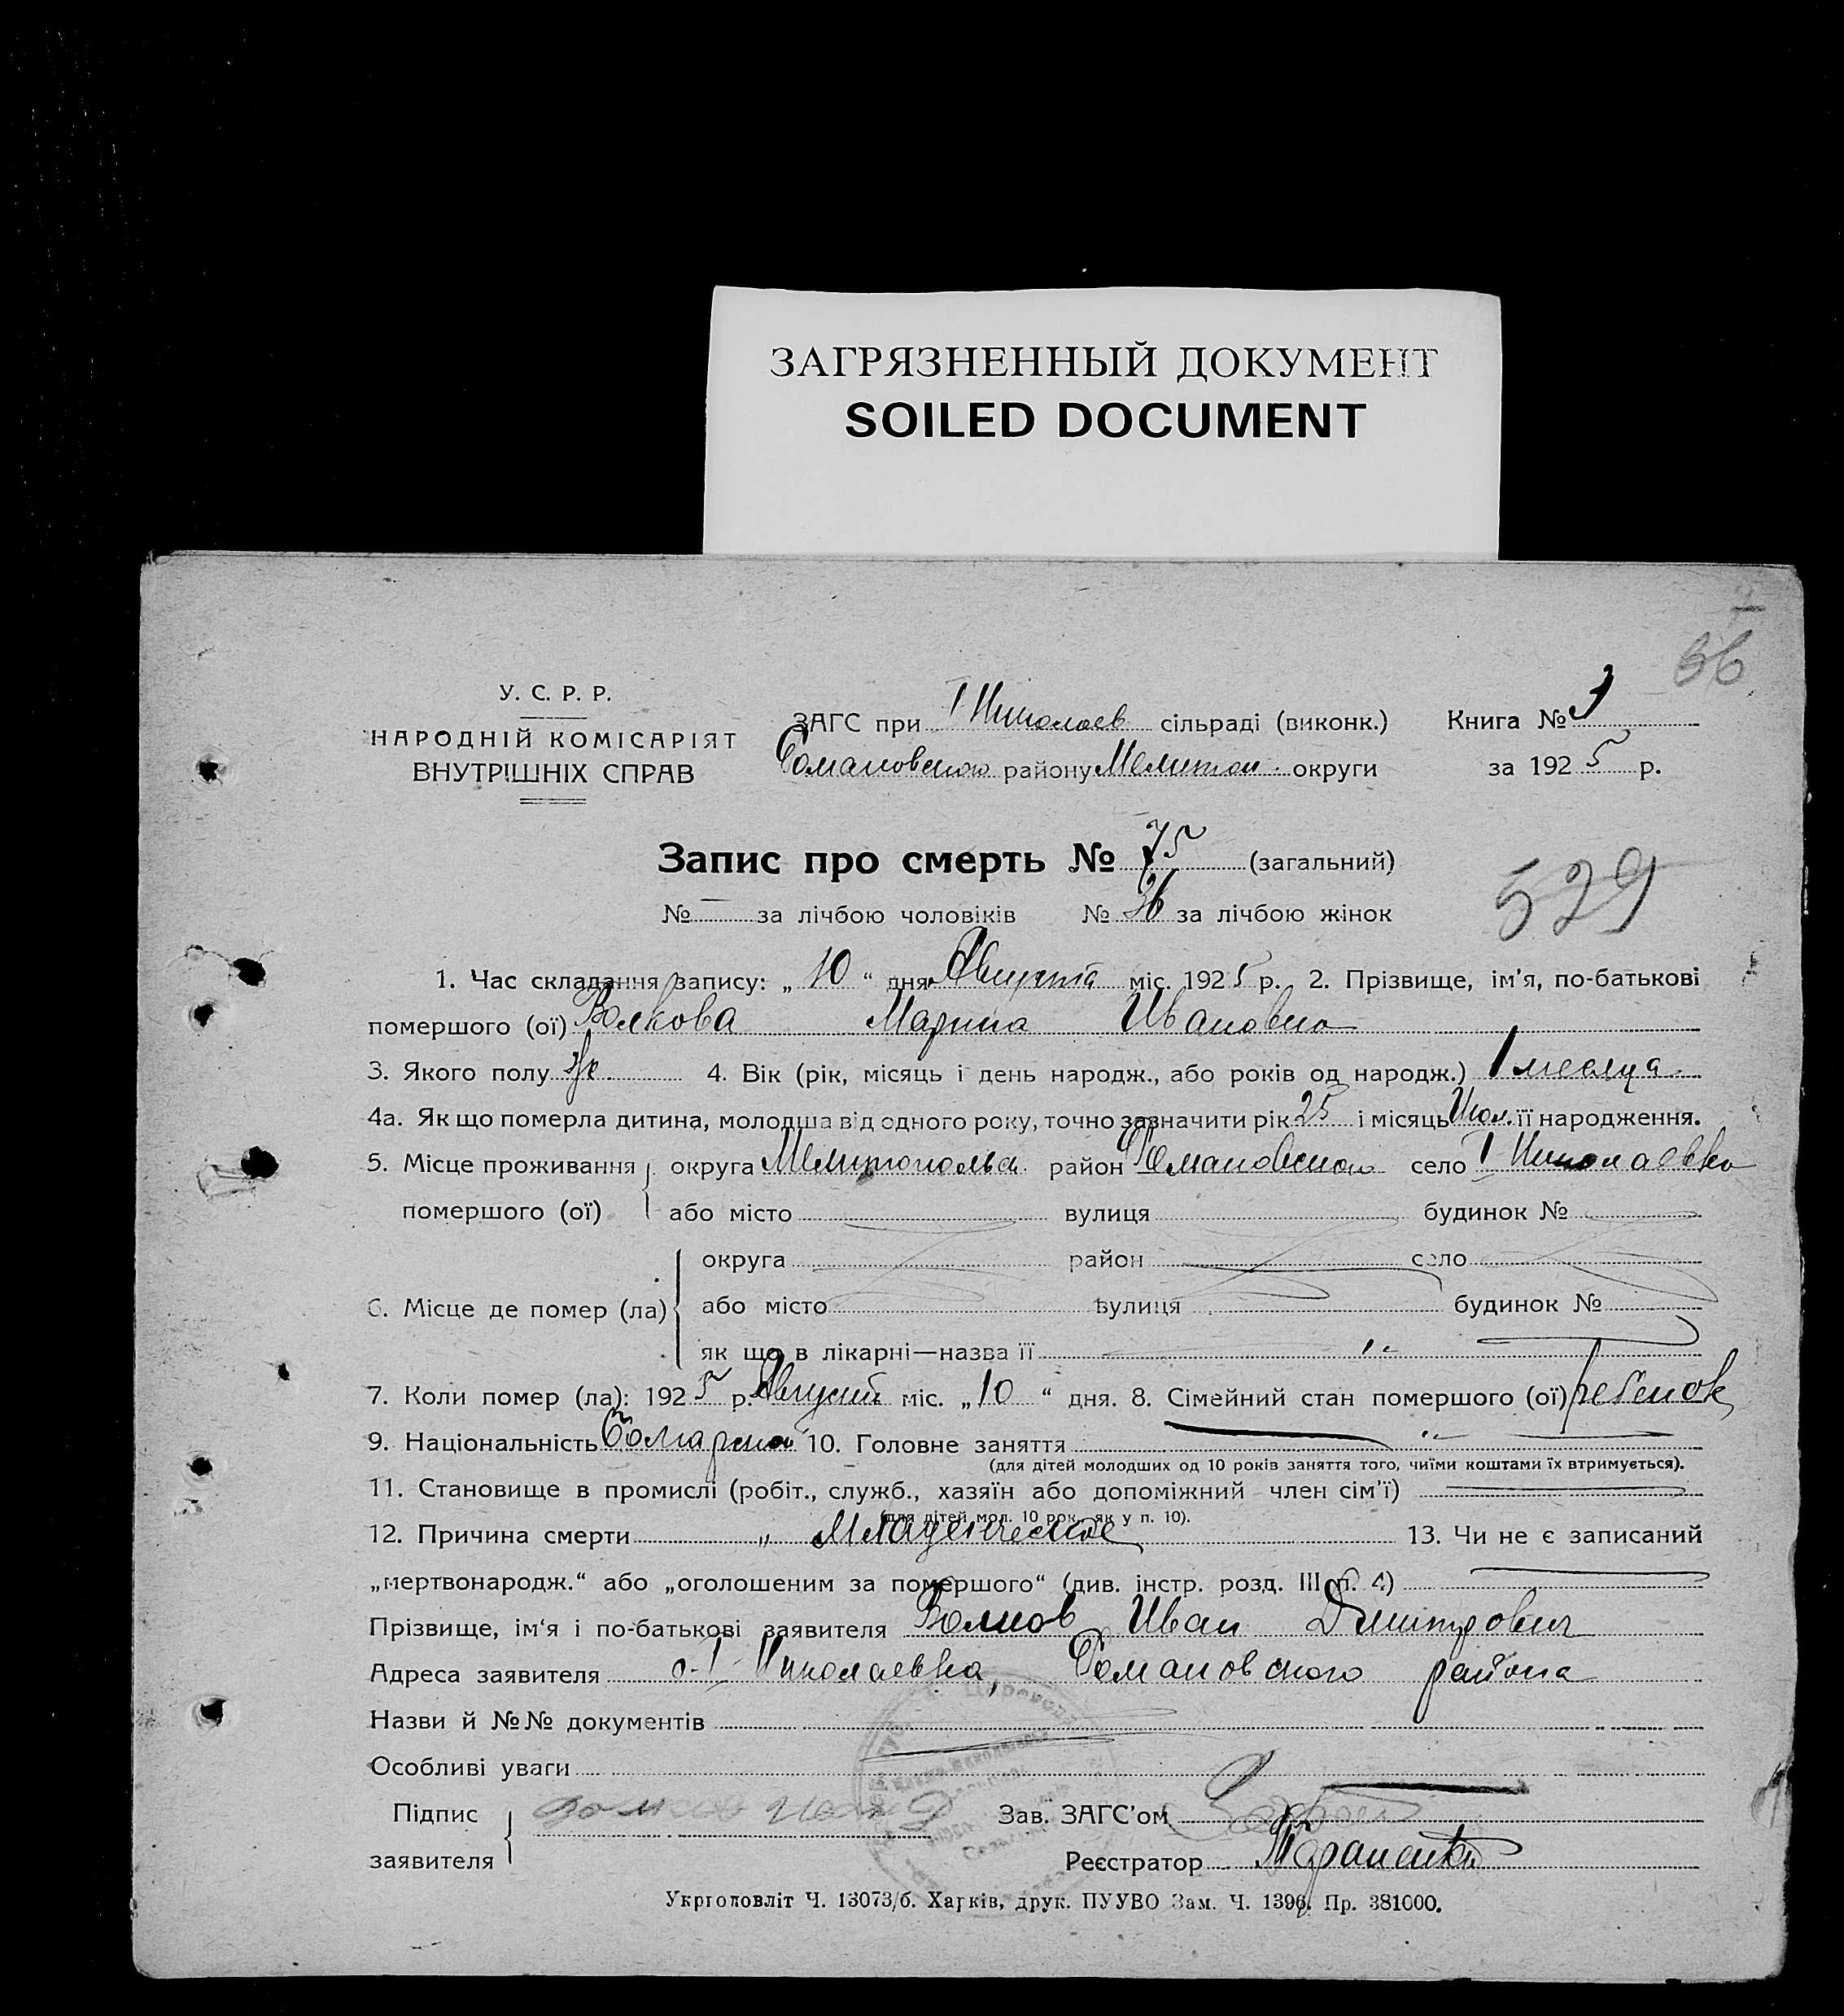 ЗАГРЯЗНЕННЫЙ ДОКУМЕНТ
SOILED DOCUMENT
36
У. С. Р. Р.
НАРОДНІЙ КОМІСАРІЯТ
ВНУТРІШНІХ СПРАВ
ЗАГС при I Николаев сільраді (виконк.) Книга №
Романовского району Мелитоп. округи за 1925 р.
Запис про смерть № 75 (загальний)
№ — за лічбою чоловіків № 36 за лічбою жінок
529
1. Час складання запису: „ 10 “ дня Августа міс. 1925 р. 2. Прізвище, ім’я, по-батькові
помершого (ої) Волкова Марина Ивановна
3. Якого полу ж. 4. Вік (рік, місяць і день народж., або років од народж.) 1 месяца
4а. Як що померла дитина, молодша від одного року, точно зазначити рік 25 і місяць Июл. її народження.
5. Місце проживання округа Мелитопольск. район Романовского село I Николаевка
помершого (ої) або місто вулиця будинок №
округа район село
6. Місце де помер (ла) або місто вулиця будинок №
як що в лікарні—назва її
7. Коли помер (ла): 1925 р. Август міс. „ 10 “ дня. 8. Сімейний стан помершого (ої) ребенок
9. Національність болгарка 10. Головне заняття
(для дітей молодших од 10 років заняття того, чиїми коштами їх втримується).
11. Становище в промислі (робіт., служб., хазяїн або допоміжний член сім’ї)
(для дітей мол. 10 рок. як у п. 10).
12. Причина смерти „ Младенческое 13. Чи не є записаний
„мертвонародж.“ або „оголошеним за помершого“ (див. інстр. розд. III п. 4)
Прізвище, ім‘я і по-батькові заявителя Волков Иван Дмитрович
Адреса заявителя с. I Николаевка, Романовского района
Назви й №№ документів
Особливі уваги
Підпис Зав. ЗАГС’ом
заявителя Реєстратор
Укрголовліт Ч. 13073/б. Харків, друк. ПУУВО Зам. Ч. 1396. Пр. 381000.